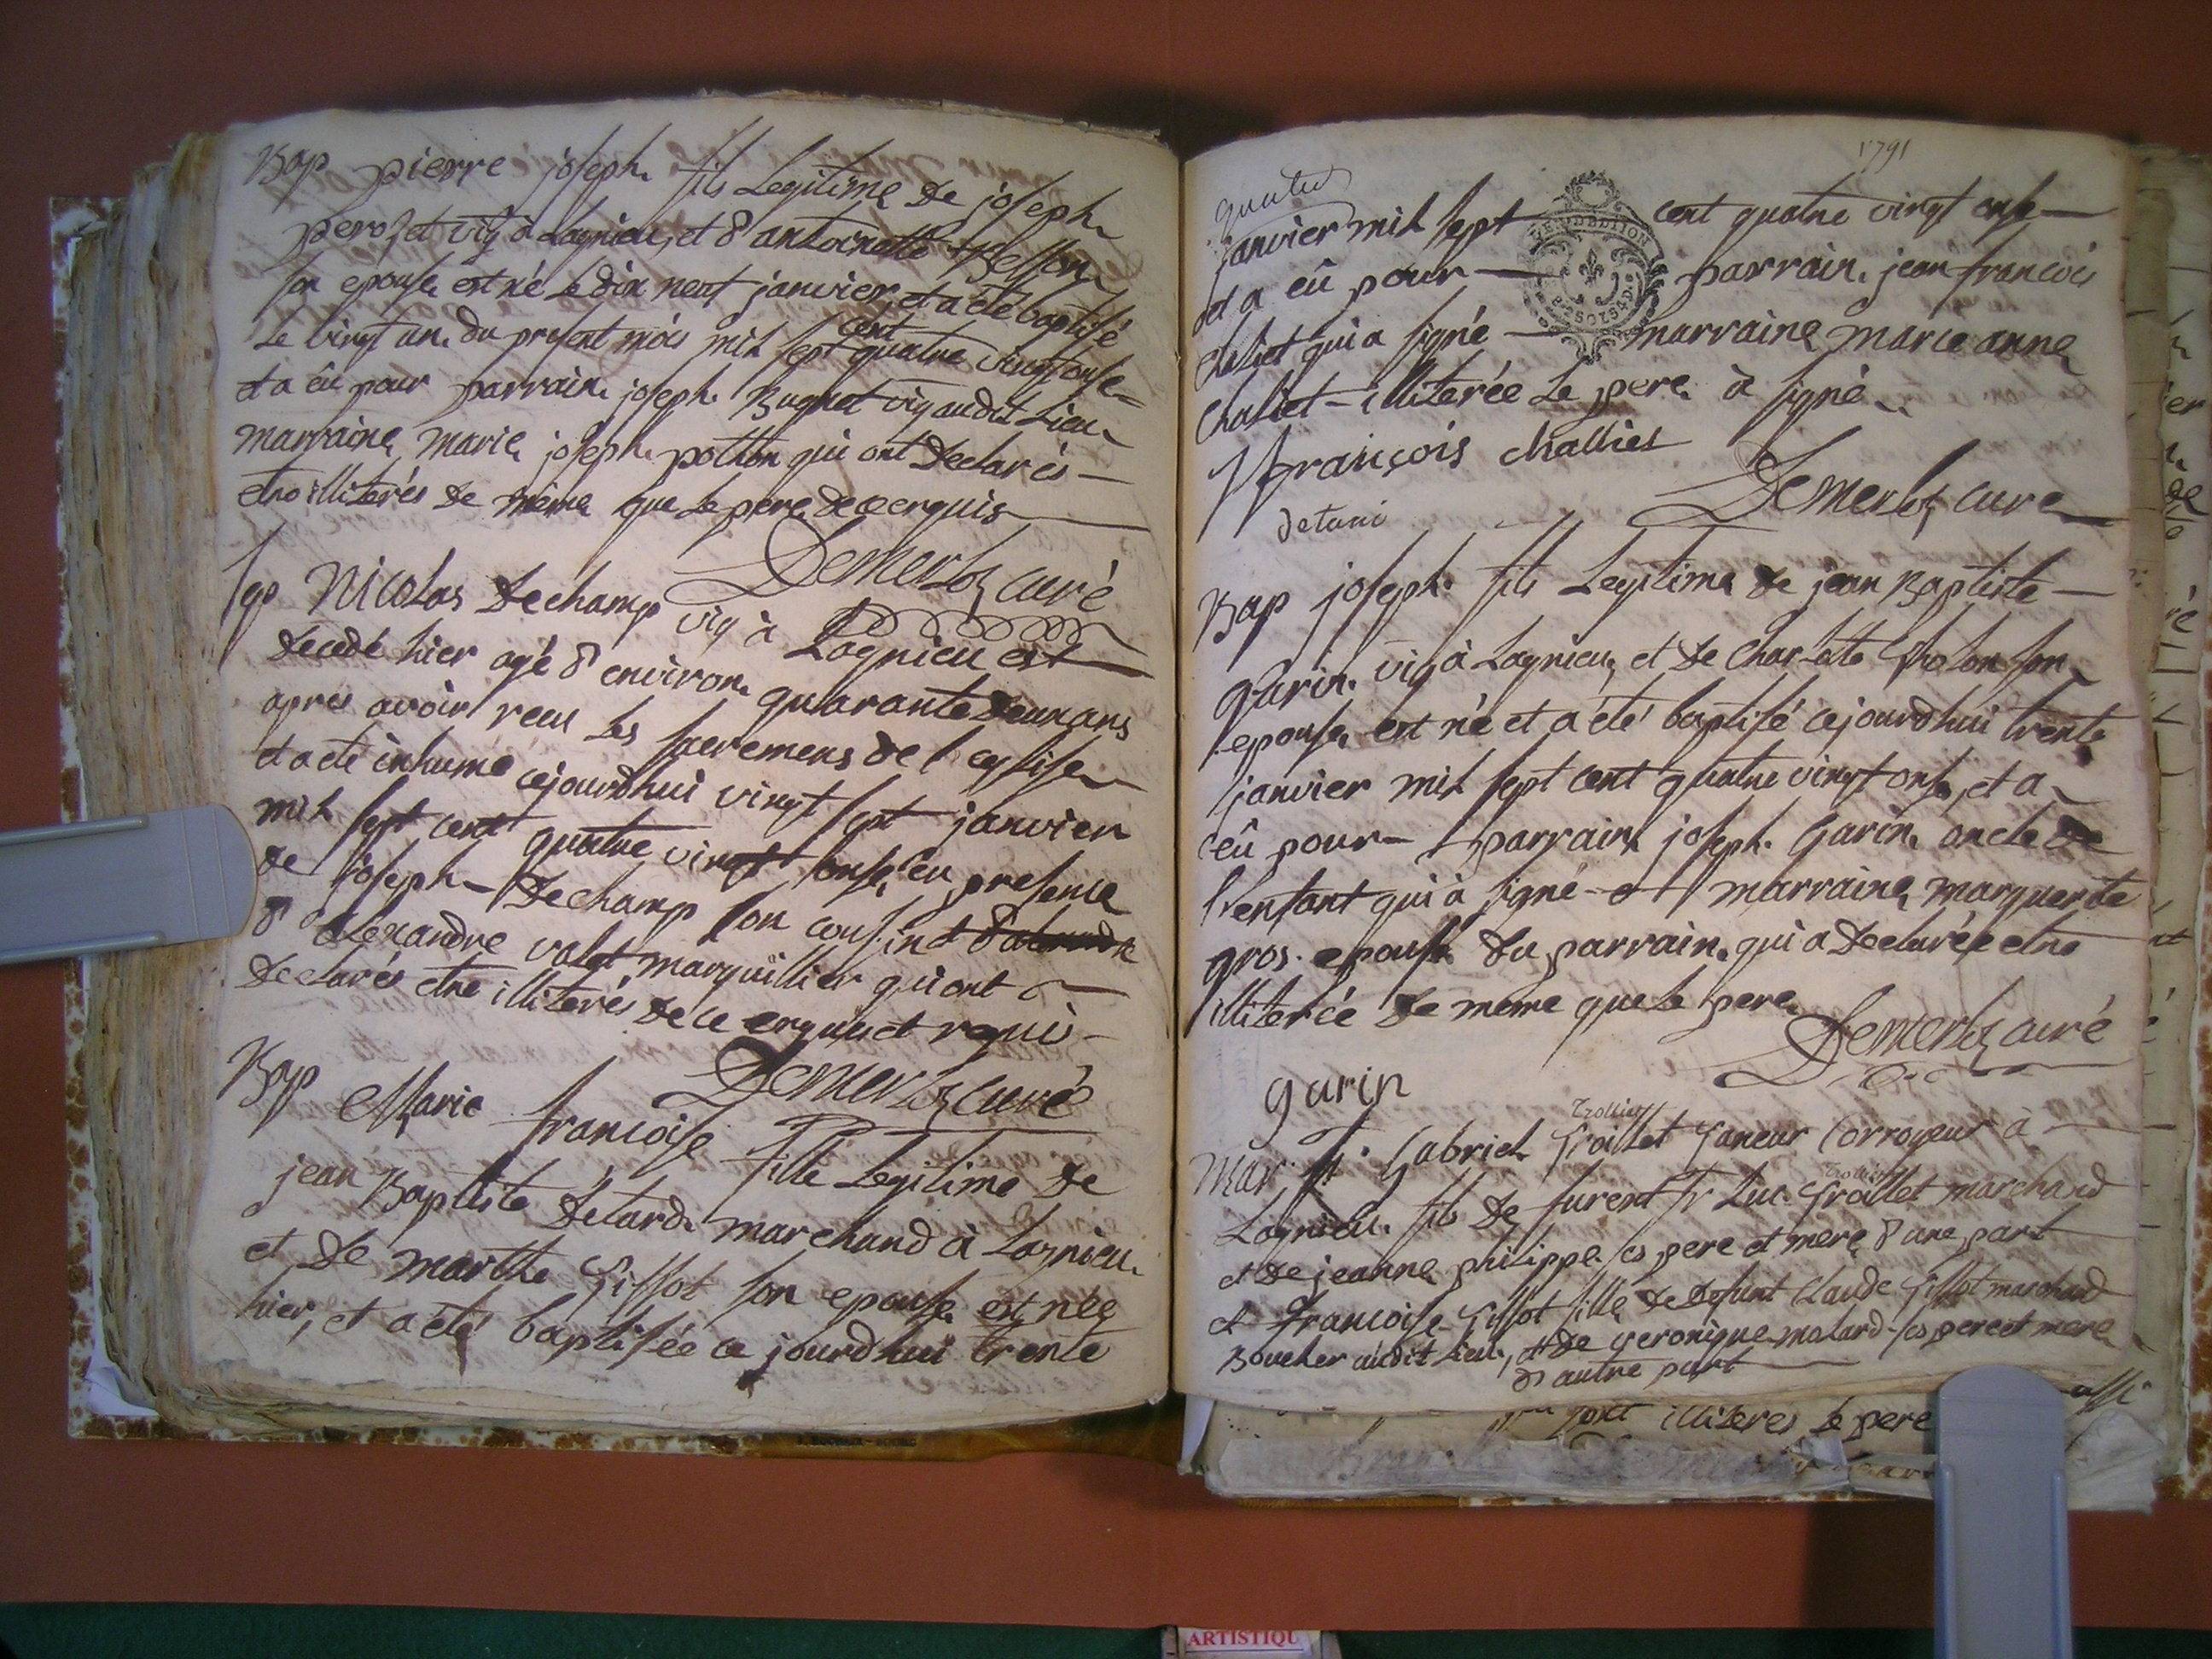 Bap pierre joseph fils Legitime de joseph
perozet vig à Lagnieu, et d'antoinette Besson
son epouse est né Le dix neuf janvier, et a été baptisé
Le vingt un du present mois mil sept cent quatre vingt onse
et a êu pour parrain joseph Bugnet vig audit Lieu
marraine marie joseph pothon qui ont Declarés
etre illiterés de même que Le pere de ce enquis
Demerloz curé
Sep Nicolas Dechamp vig à Lagnieu est
Decedé hier agé d'environ quarante deux ans
apres avoir recu Les sacremens de l'eglise
et a eté inhumé cejourdhui vingt sept janvier
mil sept cent quatre vingt onse, en presence
de joseph Dechamp son cousin et d'alexandre
d'alexandre valet marguillier qui ont
Declarés etre illiterés de ce enquis et requis
Demerloz curé
Bap Marie francoise fille Legitime de
jean Baptiste Détard marchand à Lagnieu
et de marthe Gissot son epouse est née
hier, et a eté baptisée ce jourdhui trente
1791
janvier mil sept cent quatre vingt onse
et a eû pour parrain jean francois
chaliet qui a signé marraine marie anne
chaliet illiterée Le pere à signé
françois challiet
Demerloz cure
detard
Bap joseph fils Legitime de jean Baptiste
Garin vig à Lagnieu, et de Charlotte son
epouse est né et a été baptisé cejourdhui trente
janvier mil sept cent quatre vingt onse, et a
eû pour parrain joseph Garin oncle de
l'enfant qui à signé et marraine marguerite
gros epouse du parrain qui a Declarée etre
illiterée de meme que Le pere
Demerloz curé
garin
Trolliet
Mar Sr Gabriel Troillet Taneur Corroyeur à
Trolliet
Lagnieu fils de furent Sr Luc Troillet marchand
et de jeanne philippe ses pere et mere d'une part
et francoise Gissot fille de defunt Claude Gissot marchand
Boucher audit Lieu, et de veronique molard ses pere et mere
d'autre part
sont illiteres Le pere
ARTISTIQU